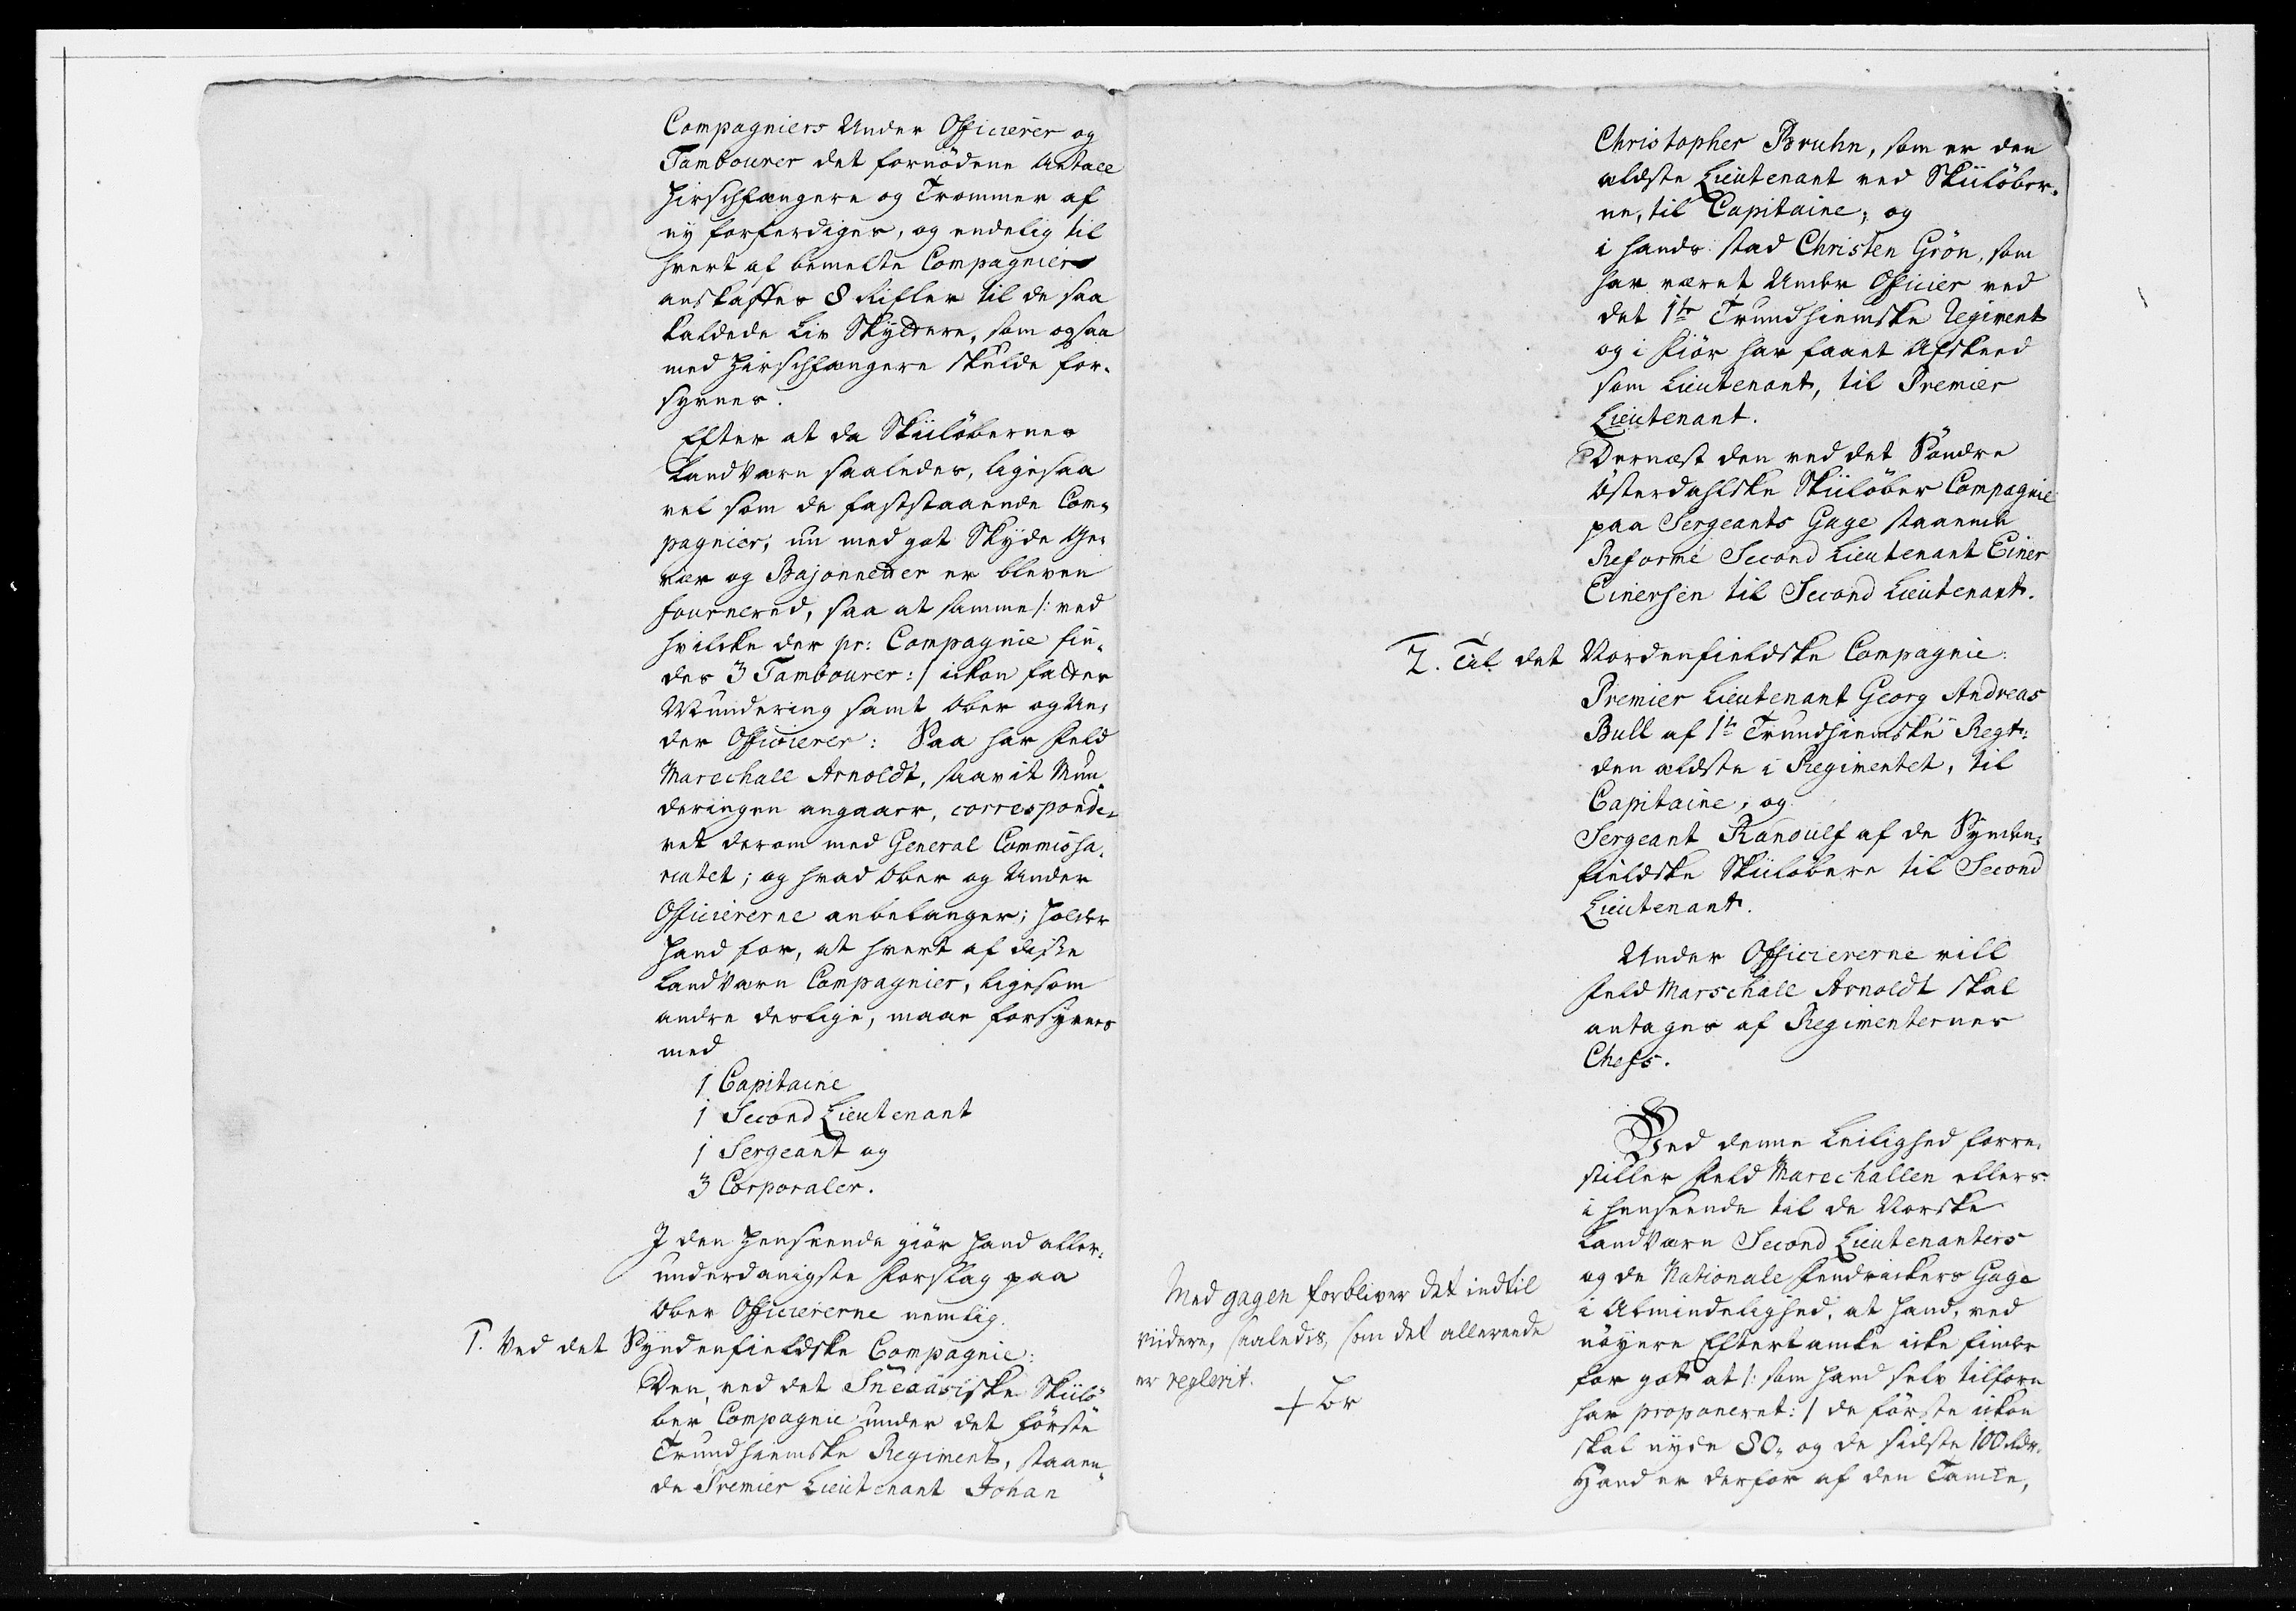 Compagniers Under Officierer og
Tambourer det fornödene Antall
Hirschfængere og Trommer af
ny forferdiges, og endelig til
hvert af bemelte Compagnier
anskaffes 8 Rifler til de saa
kaldede Liv Skyttere, som ogsaa
med Hirschfængere skulde for-
synes.
Efter at da Skiilöbernes
LandVærn saaledes, ligesaa
vel som de faststaaende Com-
pagnier, nu med got Skyde Ge-
vær og Bajonnetter er bleven
fournered, saa at samme /: ved
hvilcke der pr: Compagnie fin-
des 3 Tambourer :/ ickon fattes
Mundering samt Ober og Un-
der Officierer: Saa har Feld
Marechall Arnoldt, saavit Mun-
deringen angaaer, corresponde-
ret derom med General Commissa-
riatet; og hvad Ober og Under
Officiererne anbelanger; holder
Hand for, at hvert af disse
LandVærn Compagnier, ligesom
andre deslige, maae forsynes
med
1 Capitaine
1 Second Lieutenant
1 Sergeant og
3 Corporaler.
I den Henseende giör Hand aller-
underdanigste Forslag paa
Ober Officiererne nemlig.
1. Ved det Syndenfieldske Compagnie:
Den, ved det Sneaasiske Skiilö-
ber Compagnie under det förste
Trundhiemske Regiment, staaen-
de Premier Lieutenant Johan
Christopher Bruhn, som er den
ældste Lieutenant ved Skiilöber-
ne, til Capitaine, og
i hands stad Christen Grön, som
har været Under Officier ved
det 1te Trundhiemske Regiment
og i Fiör har faaet Afskeed
som Lieutenant, til Premier
Lieutenant.
Dernæst den ved det Söndre
Österdahlske Skiilöber Compagnie
paa Sergeants Gage staaende
Reformé Second Lieutenant Einer
Einersen til Second Lieutenant.
2. Til det Nordenfieldske Compagnie:
Premier Lieutenant Georg Andreas
Bull af 1te Trundhiemske Regt:
den ældste i Regimentet, til
Capitaine, og
Sergeant Randulf af de Synden-
fieldske Skiilöbere til Second
Lieutenant.
Under Officiererne vill
Feld Marschall Arnoldt skal
antages af Regimenternes
Chefs.
Ved denne Leilighed forre-
stiller Feld Marechallen ellers
i henseende til de Norske
LandVærn Second Lieutenanters
og de Nationale Fendrickers Gage
i Almindelighed, at Hand, ved
nöyere Eftertancke icke finder
for got at /: som Hand selv tilforn
har proponeret :/ de förste ickon
skal nyde 80, og de sidste 100 Rdr.
Hand er derfor af den Tancke,
Med gagen forbliver det indtil
viidere, saaledes, som det allereede
er reglerit.